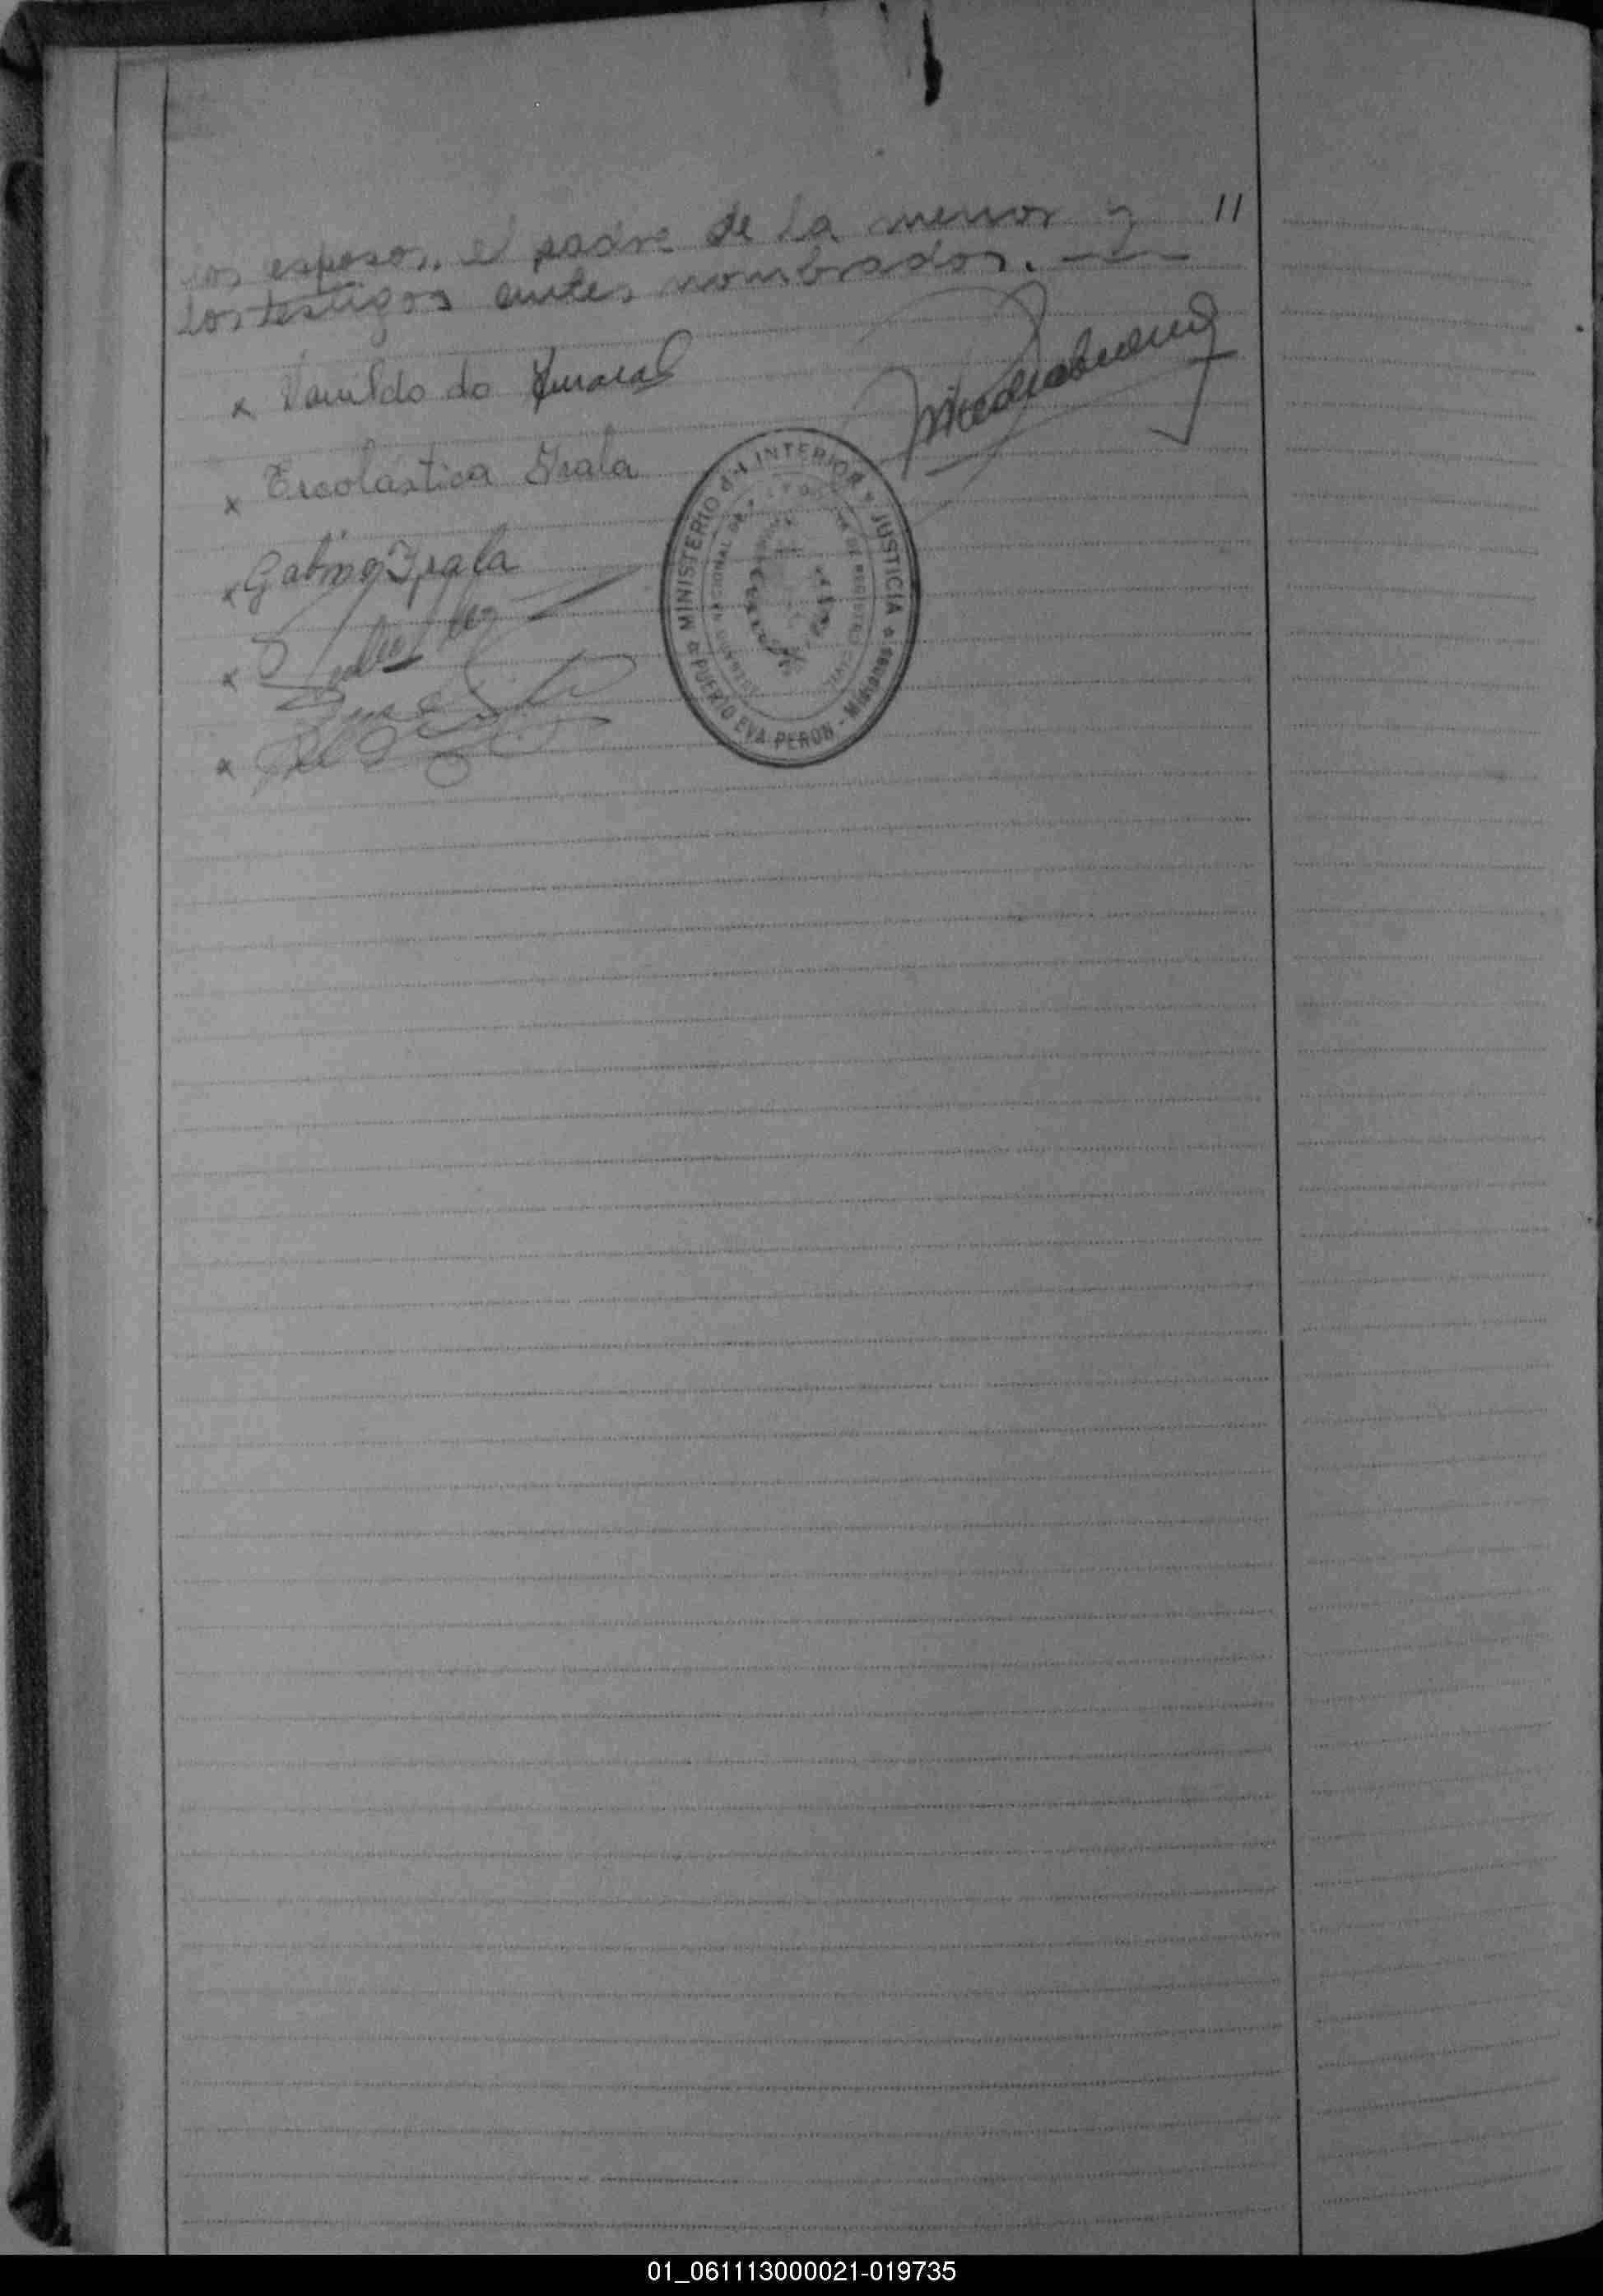 11
los esposos, el padre de la menor y
los testigos antes nombrados.
x Vanildo do Amaral
x Escolastica Yrala
x Gabino Yrala
x
x
MINISTERIO del INTERIOR y JUSTICIA
NACIONAL DE REGISTRO CIVIL
PUERTO EVA PERON - Misiones
01_061113000021-019735